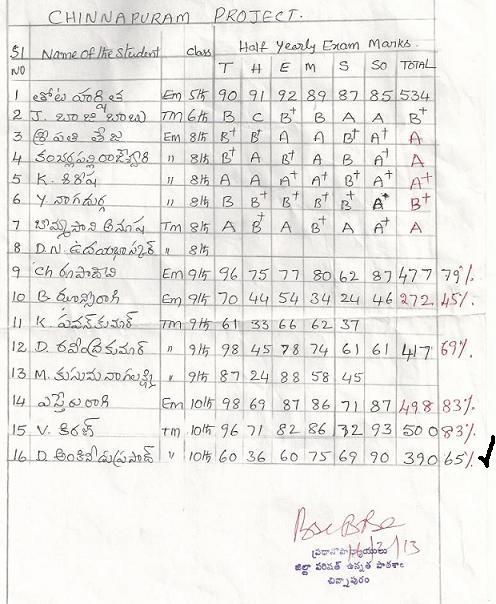 CHINNAPURAM PROJECT.
Sl NO Name of the Student class Half Yearly Exam Marks.
T H E M S So TOTAL
1 తోట హర్షిత Em 5th 90 91 92 89 87 85 534
2 J. బాజి బాబు TM 6th B C B+ B A A B+
3 శ్రీపతి తేజ Em 8th B+ B+ A A B+ A+ A
4 Em 8th B+ A B+ A B A+ A
5 K. శిరీష " 8th A A A A+ B+ A+ A+
6 Y నాగదుర్గ " 8th B B+ B+ B+ B+ A+ B+
7 Tm 8th A B+ A B+ A A+ A
8 D.N. ఉదయభాస్కర్ " 8th
9 Ch రూపాదేవి Em 9th 96 75 77 80 62 87 477 79%
10 B. ఝాన్సీరాణి Em 9th 70 44 54 34 24 46 272 45%
11 K. పవన్ కుమార్ TM 9th 61 33 66 62 37
12 D. రవీంద్రకుమార్ " 9th 98 45 78 74 61 61 417 69%
13 M. కుసుమ నాగలక్ష్మి " 9th 87 24 88 58 45
14 ఎస్తేరు రాణి Em 10th 98 69 87 86 71 87 498 83%
15 V. కిరణ్ Tm 10th 96 71 82 86 72 93 500 83%
16 D. అంకినీడు ప్రసాద్ " 10th 60 36 60 75 69 90 390 65% ✓
ప్రధానోపాధ్యాయులు
జిల్లా పరిషత్ ఉన్నత పాఠశాల
చిన్నాపురం